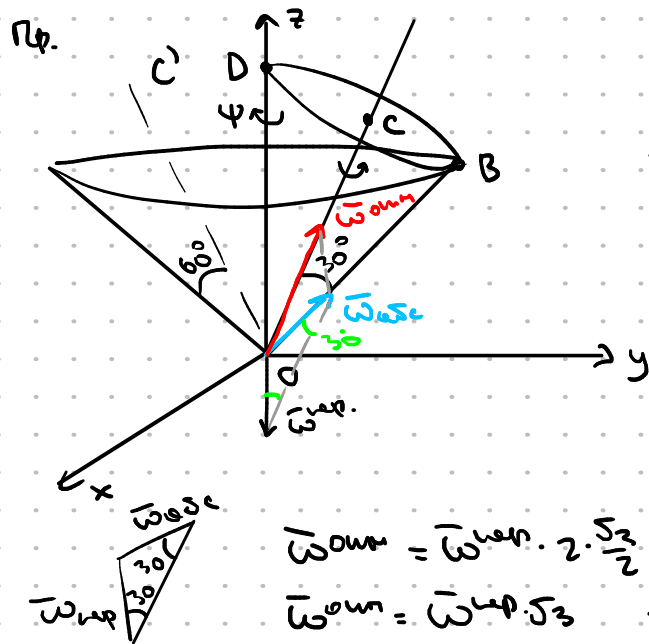 Пр.
z
C'
D
ψ
C
B
ω̅ отн
60°
30°
ω̅ абс
30
O
y
ω̅ пер.
x
ω̅ абс
30
30
ω̅ пер
ω̅ отн = ω̅ пер · 2 · √3/2
ω̅ отн = ω̅ пер · √3